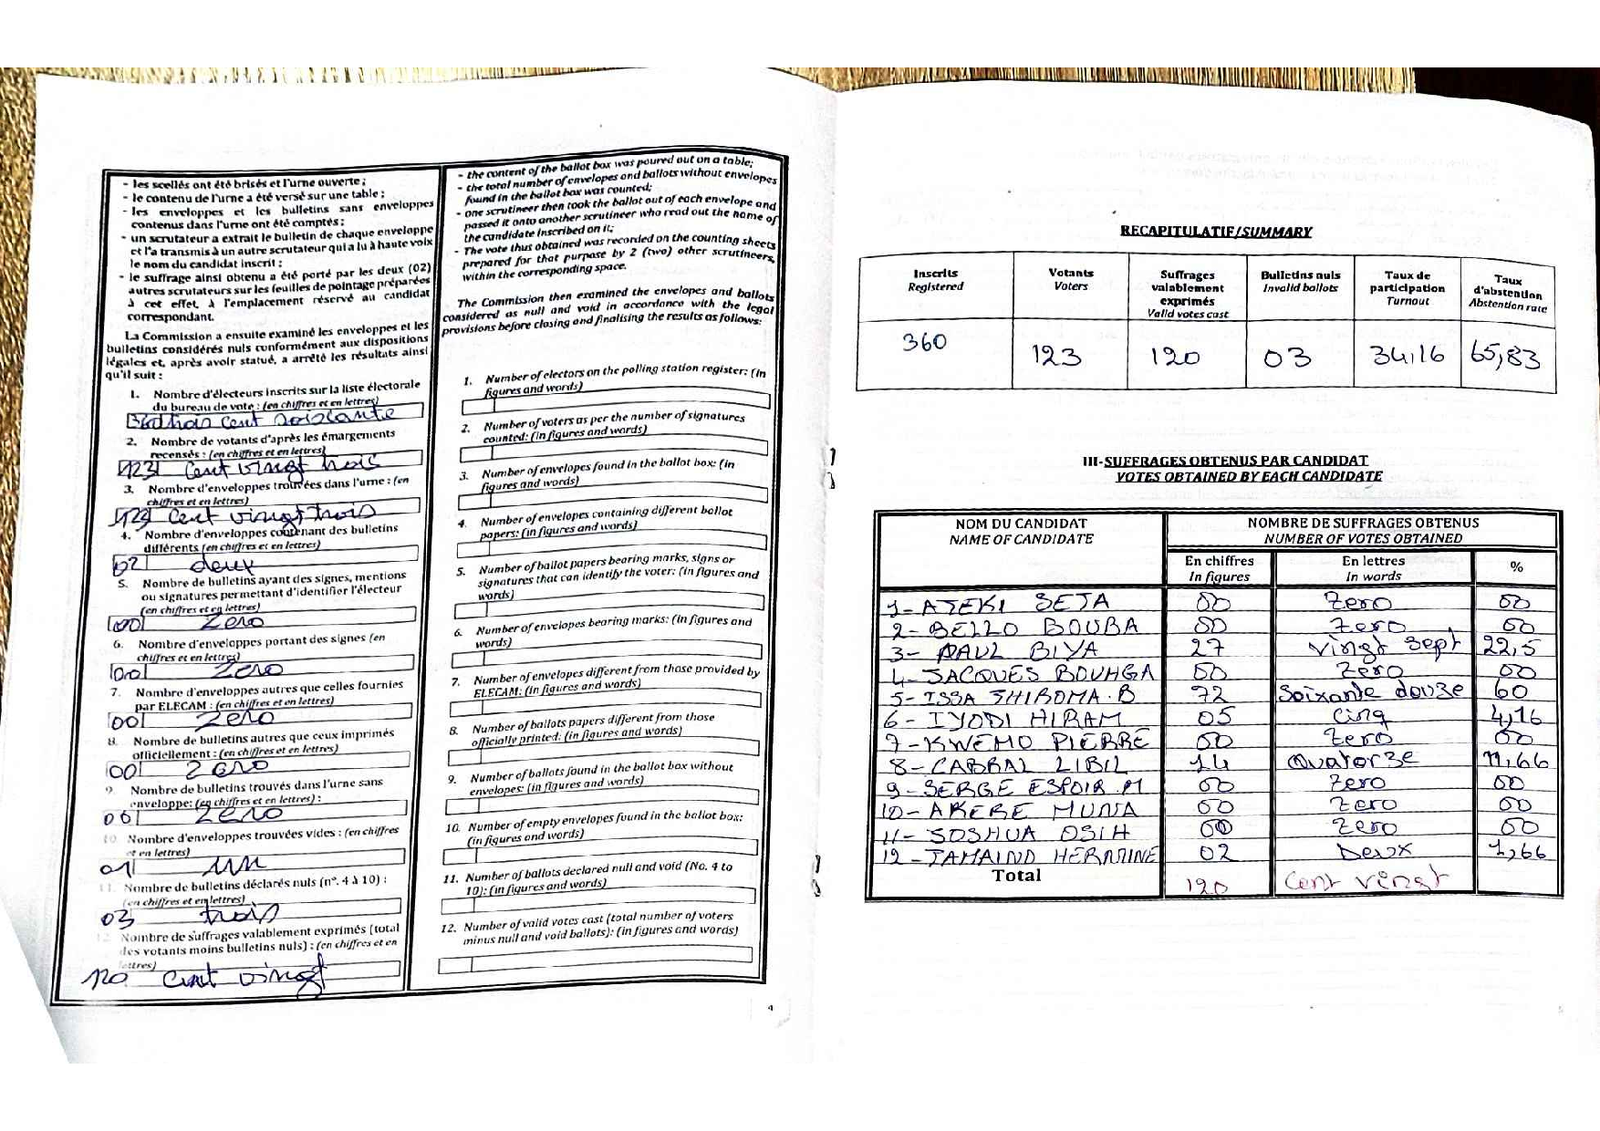 - les scellés ont été brisés et l'urne ouverte ;
- le contenu de l'urne a été versé sur une table ;
- les enveloppes et les bulletins sans enveloppes
contenus dans l'urne ont été comptés ;
- un scrutateur a extrait le bulletin de chaque enveloppe
et l'a transmis à un autre scrutateur qui a lu à haute voix
le nom du candidat inscrit ;
- le suffrage ainsi obtenu a été porté par les deux (02)
autres scrutateurs sur les feuilles de pointage préparées
à cet effet, à l'emplacement réservé au candidat
correspondant.
La Commission a ensuite examiné les enveloppes et les
bulletins considérés nuls conformément aux dispositions
légales et, après avoir statué, a arrêté les résultats ainsi
qu'il suit :
1. Nombre d'électeurs inscrits sur la liste électorale
du bureau de vote : (en chiffres et en lettres)
trois cent soixante
2. Nombre de votants d'après les émargements
recensés : (en chiffres et en lettres)
123 cent vingt trois
3. Nombre d'enveloppes trouvées dans l'urne : (en
chiffres et en lettres)
123 cent vingt trois
4. Nombre d'enveloppes contenant des bulletins
différents (en chiffres et en lettres)
02 deux
5. Nombre de bulletins ayant des signes, mentions
ou signatures permettant d'identifier l'électeur
(en chiffres et en lettres)
00 Zero
6. Nombre d'enveloppes portant des signes (en
chiffres et en lettres)
00 Zero
7. Nombre d'enveloppes autres que celles fournies
par ELECAM : (en chiffres et en lettres)
00 Zero
8. Nombre de bulletins autres que ceux imprimés
officiellement : (en chiffres et en lettres)
00 Zero
9. Nombre de bulletins trouvés dans l'urne sans
enveloppe: (en chiffres et en lettres) :
00 Zero
10. Nombre d'enveloppes trouvées vides : (en chiffres
et en lettres)
01 un
11. Nombre de bulletins déclarés nuls (n°. 4 à 10) :
(en chiffres et en lettres)
03 trois
12. Nombre de suffrages valablement exprimés (total
des votants moins bulletins nuls) : (en chiffres et en
lettres)
120 cent vingt
- the content of the ballot box was poured out on a table;
- the total number of envelopes and ballots without envelopes
found in the ballot box was counted;
- one scrutineer then took the ballot out of each envelope and
passed it onto another scrutineer who read out the name of
the candidate inscribed on it;
- The vote thus obtained was recorded on the counting sheets
prepared for that purpose by 2 (two) other scrutineers,
within the corresponding space.
The Commission then examined the envelopes and ballots
considered as null and void in accordance with the legal
provisions before closing and finalising the results as follows:
1. Number of electors on the polling station register: (in
figures and words)
2. Number of voters as per the number of signatures
counted: (in figures and words)
3. Number of envelopes found in the ballot box: (in
figures and words)
4. Number of envelopes containing different ballot
papers: (in figures and words)
5. Number of ballot papers bearing marks, signs or
signatures that can identify the voter: (in figures and
words)
6. Number of envelopes bearing marks: (in figures and
words)
7. Number of envelopes different from those provided by
ELECAM: (in figures and words)
8. Number of ballots papers different from those
officially printed: (in figures and words)
9. Number of ballots found in the ballot box without
envelopes: (in figures and words)
10. Number of empty envelopes found in the ballot box:
(in figures and words)
11. Number of ballots declared null and void (No. 4 to
10): (in figures and words)
12. Number of valid votes cast (total number of voters
minus null and void ballots): (in figures and words)
4
RECAPITULATIF/SUMMARY
Inscrits Registered | Votants Voters | Suffrages valablement exprimés Valid votes cast | Bulletins nuls Invalid ballots | Taux de participation Turnout | Taux d'abstention Abstention rate
360 | 123 | 120 | 03 | 34,16 | 65,83
III-SUFFRAGES OBTENUS PAR CANDIDAT
VOTES OBTAINED BY EACH CANDIDATE
NOM DU CANDIDAT NAME OF CANDIDATE | NOMBRE DE SUFFRAGES OBTENUS NUMBER OF VOTES OBTAINED
En chiffres In figures | En lettres In words | %
1- ATEKI SETA 00 Zero 00
2- BELLO BOUBA 00 Zero 00
3- PAUL BIYA 27 Vingt Sept 22,5
4- JACQUES BOUHGA 00 Zero 00
5- ISSA THIROMA.B 72 Soixante douze 60
6- IYODI HIRAM 05 Cinq 4,16
7- KWEMO PIERRE 00 Zero 00
8- CABRAL LIBIL 14 Quatorze 11,66
9- SERGE ESPOIR.M 00 Zero 00
10- AKERE MUNA 00 Zero 00
11- JOSHUA OSIH 00 Zero 00
12- TAMAINO HERMINE 02 Deux 1,66
Total 120 Cent vingt